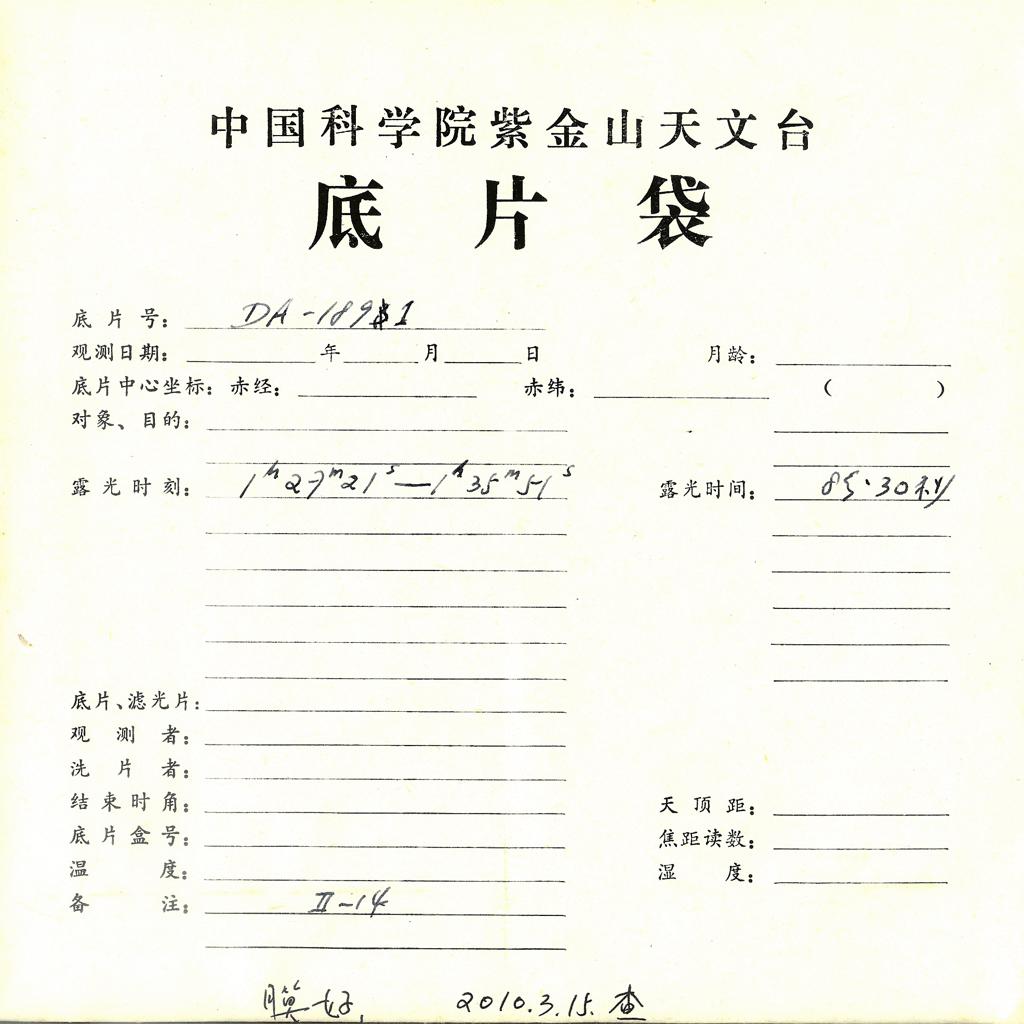 中国科学院紫金山天文台
底片袋
底片号: DA-189 I
观测日期: 年 月 日 月龄:
底片中心坐标: 赤经: 赤纬: ( )
对象、目的:
露光时刻: 1h27m21s—1h35m51s 露光时间: 8分30秒
底片、滤光片:
观测者:
洗片者:
结束时角: 天顶距:
底片盒号: 焦距读数:
温度: 湿度:
备注: II-14
膜好, 2010.3.15. 查